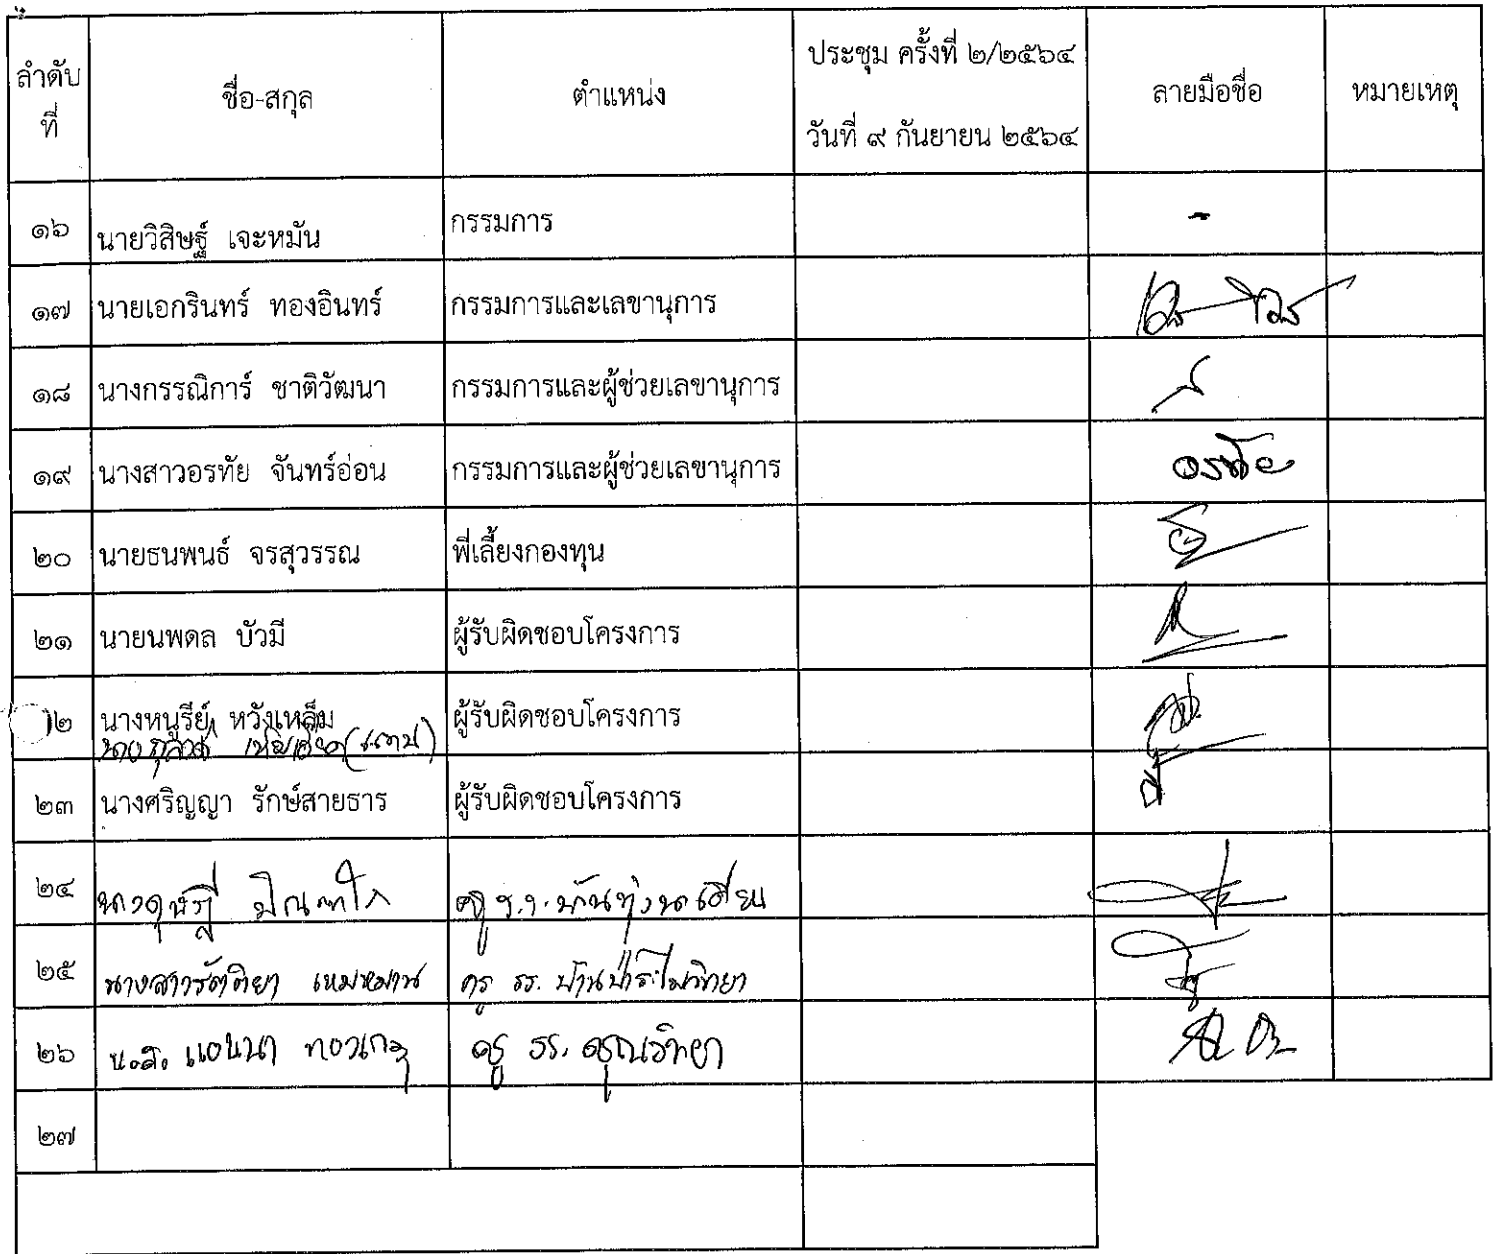 ลำดับที่ ชื่อ-สกุล ตำแหน่ง ประชุม ครั้งที่ ๒/๒๕๖๔ วันที่ ๙ กันยายน ๒๕๖๔ ลายมือชื่อ หมายเหตุ
๑๖ นายวิสิษฐ์ เจะหมัน กรรมการ -
๑๗ นายเอกรินทร์ ทองอินทร์ กรรมการและเลขานุการ
๑๘ นางกรรณิการ์ ชาติวัฒนา กรรมการและผู้ช่วยเลขานุการ
๑๙ นางสาวอรทัย จันทร์อ่อน กรรมการและผู้ช่วยเลขานุการ อรทัย
๒๐ นายธนพนธ์ จรสุวรรณ พี่เลี้ยงกองทุน
๒๑ นายนพดล บัวมี ผู้รับผิดชอบโครงการ
๒ นางหนูรีย์ หวังเหล็ม ผู้รับผิดชอบโครงการ
๒๓ นางศริญญา รักษ์สายธาร ผู้รับผิดชอบโครงการ
๒๔ ครู
๒๕ นางสาวรัตติยา เหมหมาน ครู รร.
๒๖ น.ส. ครู รร. ดรุณวิทยา
๒๗